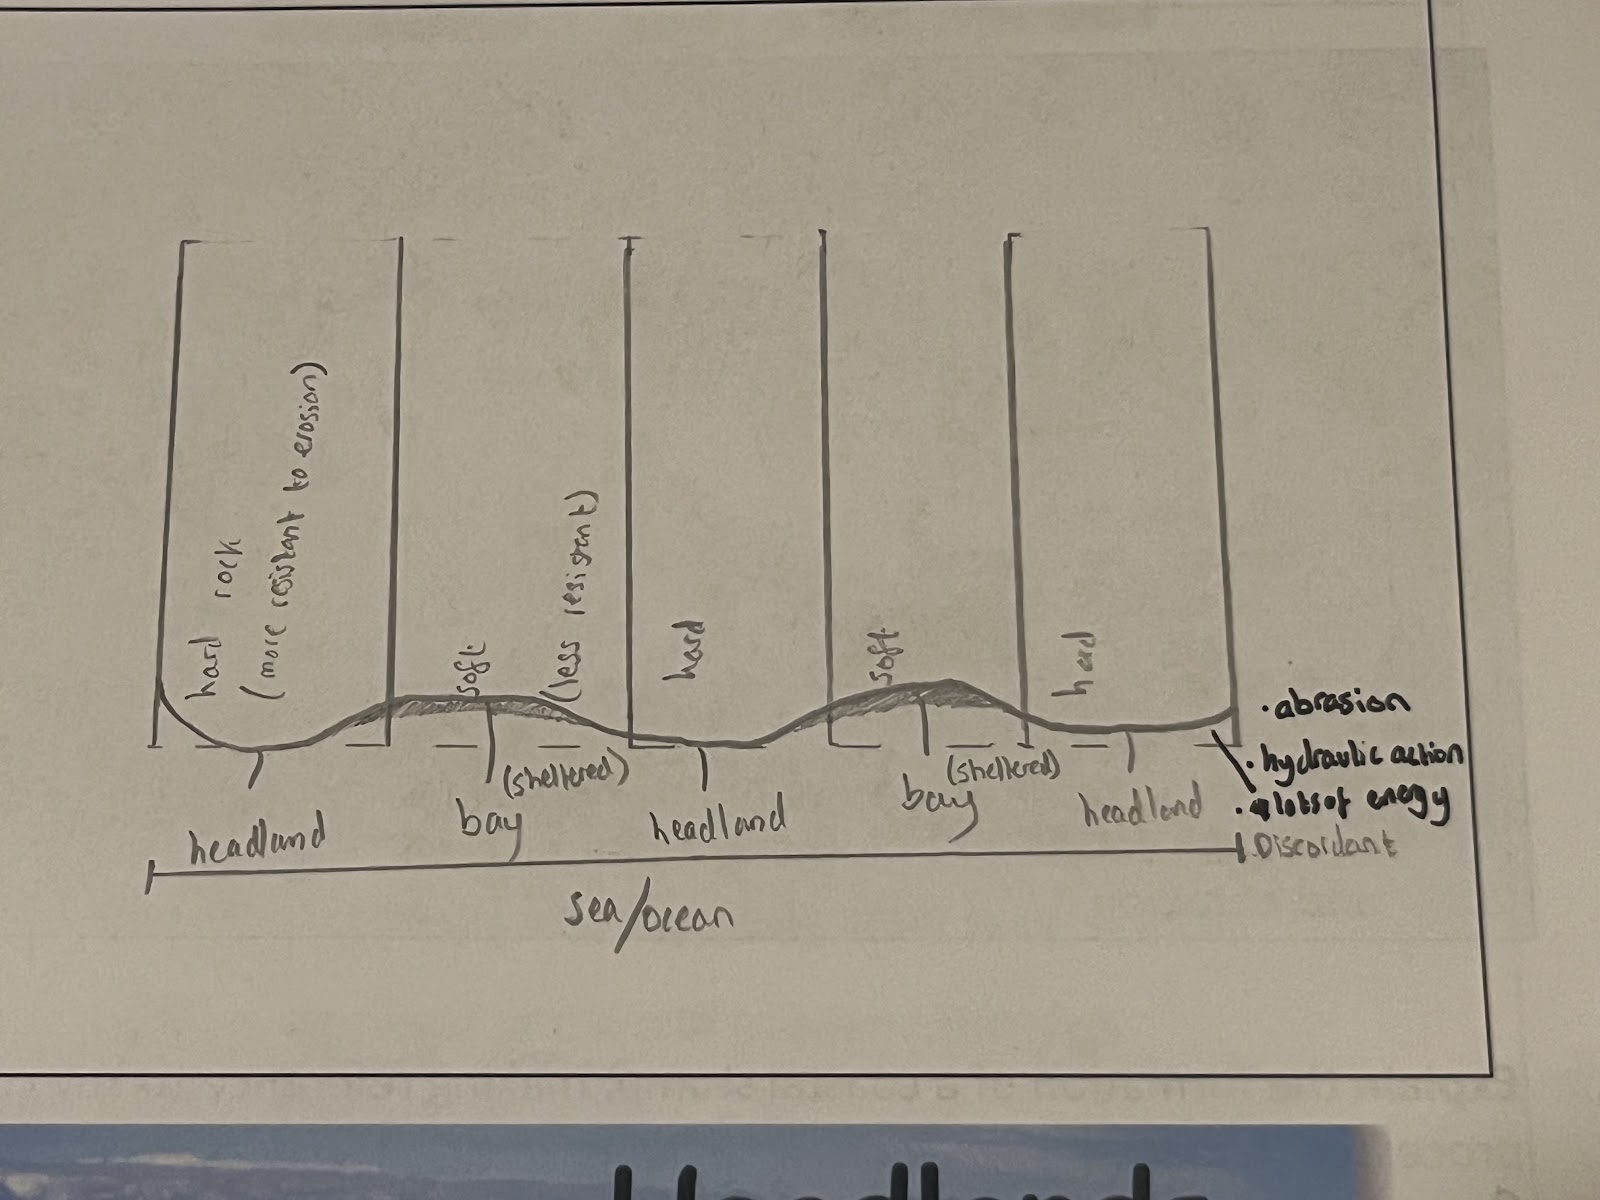 hard rock
(more resistant to erosion)
soft
(less resistant)
hard
soft
hard
• abrasion
• hydraulic action
• lots of energy
Discordant
headland
bay
(sheltered)
headland
bay
(sheltered)
headland
sea/ocean
Headlands